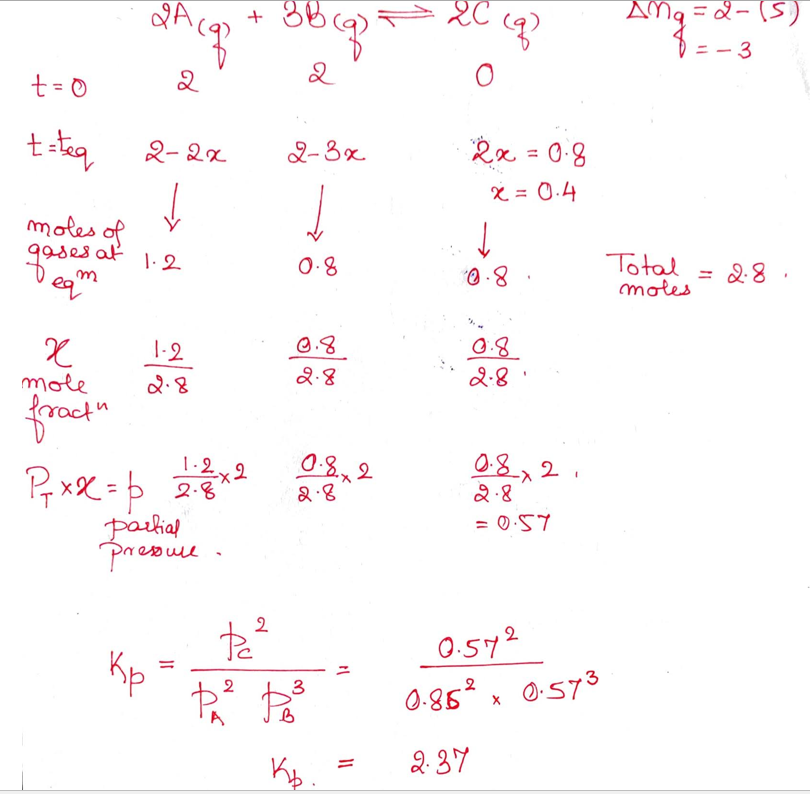 2A(g) + 3B(g) ⇌ 2C(g) Δng = 2-(5)
= -3
t=0 2 2 0
t=teq 2-2x 2-3x 2x = 0.8
x = 0.4
↓ ↓ ↓
moles of gases at eqm 1.2 0.8 0.8 . Total moles = 2.8 .
x mole fractn 1.2/2.8 0.8/2.8 0.8/2.8 .
PT × x = p partial pressure . 1.2/2.8 × 2 0.8/2.8 × 2 0.8/2.8 × 2 .
= 0.57
Kp = pC² / pA² pB³ = 0.57² / 0.85² × 0.57³
Kp. = 2.37